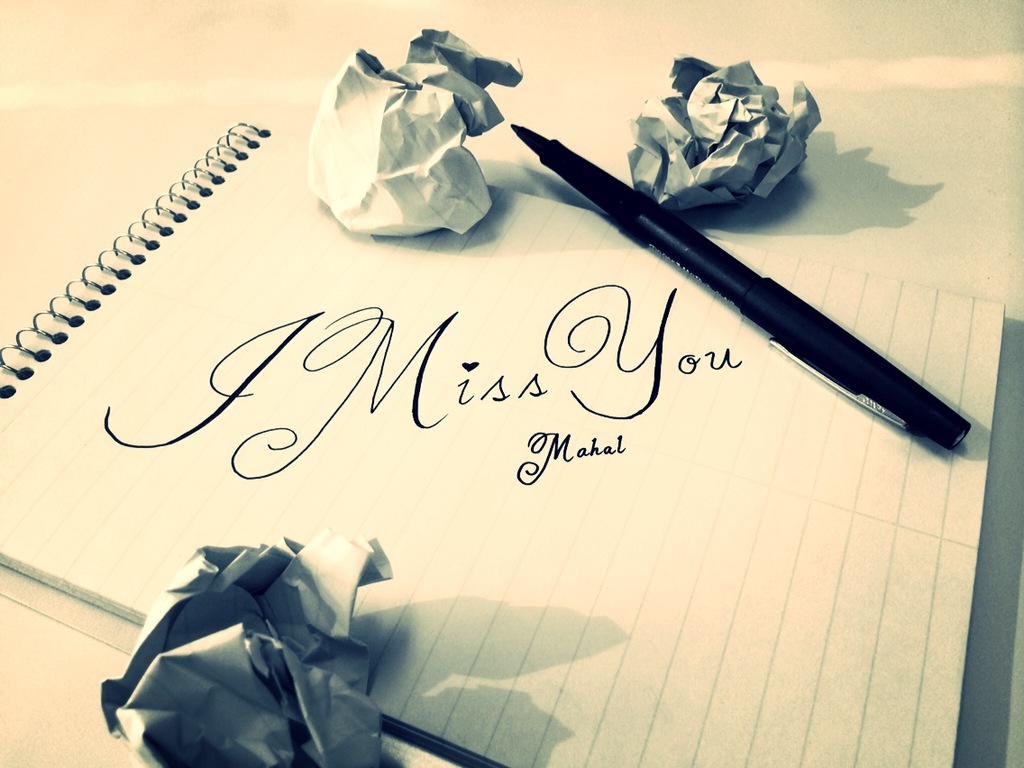 I Miss You
Mahal